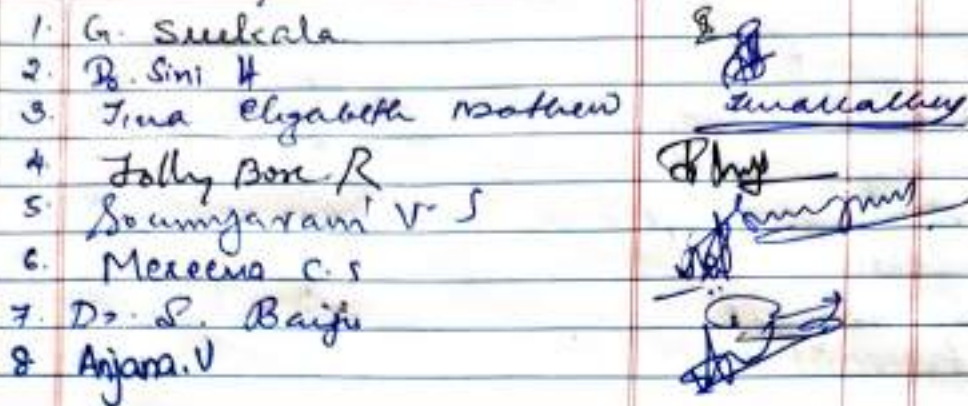 1. G. Sreekala
2. Dr. Sini H
3. Tina Elizabeth Mathew
4. Jolly Bose. R
5. Soumyarani V. S
6. Mereena C. S
7. Dr. S. Baiju
8 Anjana. V